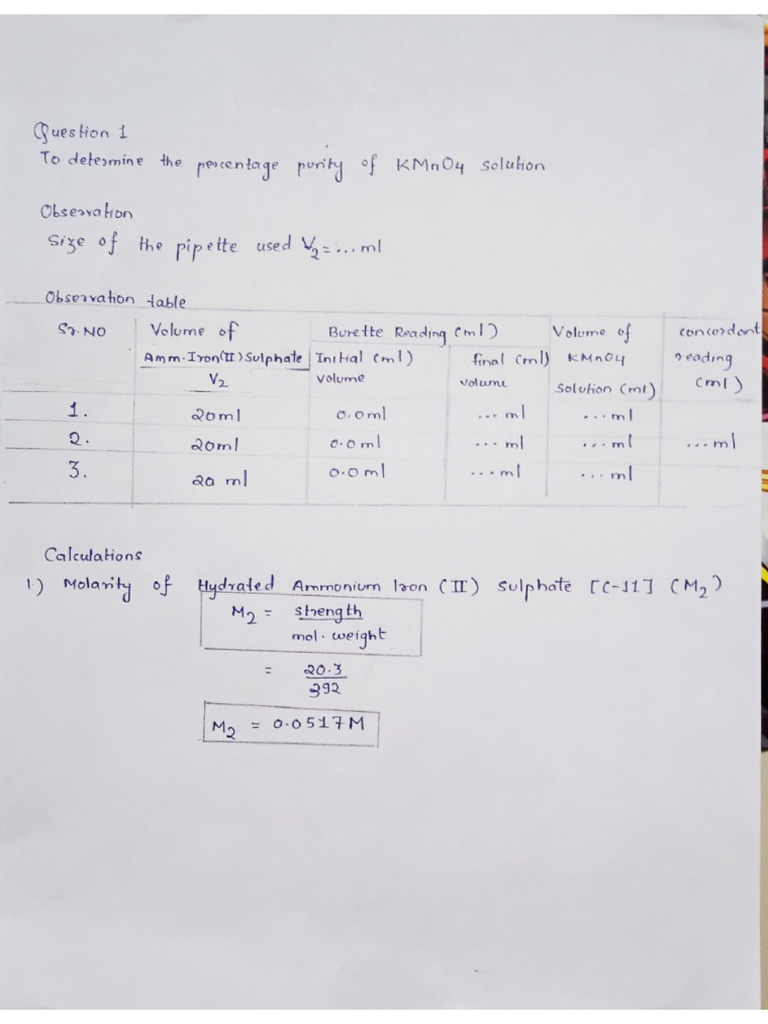 Question 1
To determine the percentage purity of KMnO4 solution
Observation
Size of the pipette used V2 = ... ml
Observation table
Sr.NO Volume of Burette Reading (ml) Volume of concordant
Amm.Iron(II) Sulphate Initial (ml) final (ml) KMnO4 reading
V2 volume volume solution (ml) (ml)
1. 20ml 0.0ml ... ml ... ml
2. 20ml 0.0ml ... ml ... ml ... ml
3. 20 ml 0.0ml ... ml ... ml
Calculations
1.) Molarity of Hydrated Ammonium Iron (II) Sulphate [C-11] (M2)
M2 = strength
mol. weight
= 20.3
392
M2 = 0.0517M